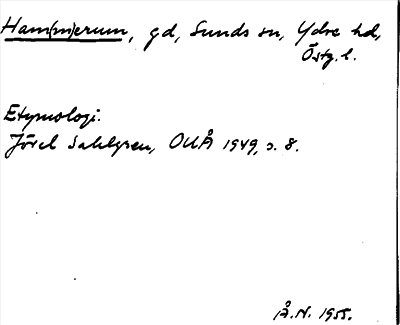 Ham(m)erum, gd, Sunds sn, Ydre hd,
Östg. l.
Etymologi.
Jöran Sahlgren, OUÅ 1949, s. 8.
Å.N. 1955.